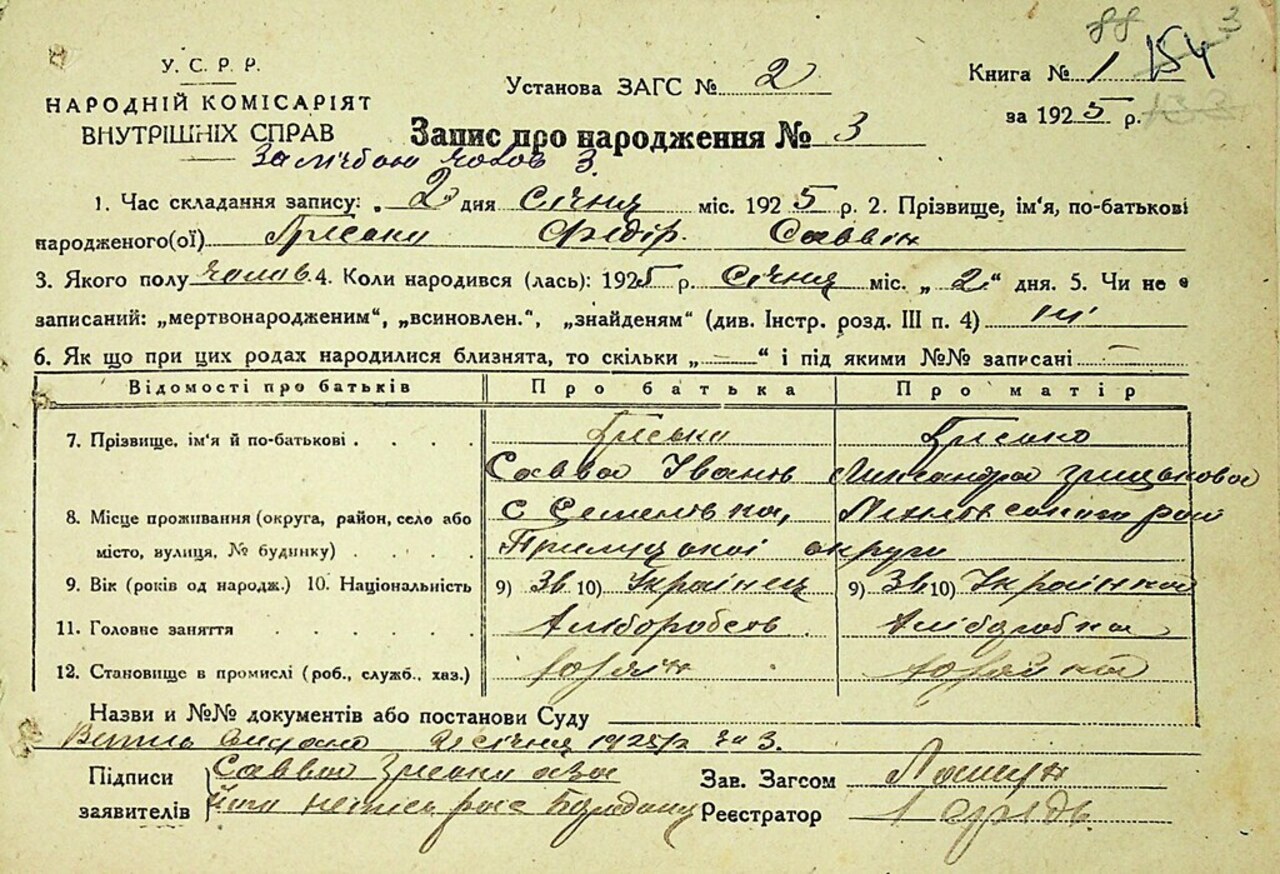 88 3
У. С. Р. Р.
НАРОДНІЙ КОМІСАРІЯТ
ВНУТРІШНІХ СПРАВ
Установа ЗАГС № 2
Книга № 1 154
за 1925 р. 133
Запис про народження № 3
За лічбою 3.
1. Час складання запису: „2 дня січня міс. 1925 р. 2. Прізвище, ім'я, по-батькові
народженого(ої) Федір Саввін
3. Якого полу чолов. 4. Коли народився (лась): 1925 р. січня міс. „2“ дня. 5. Чи не є
записаний: „мертвонародженим“, „всиновлен.“, „знайденям“ (див. Інстр. розд. III п. 4) ні
6. Як що при цих родах народилися близнята, то скільки „—“ і під якими №№ записані —
Відомості про батьків Про батька Про матір
7. Прізвище, ім'я й по-батькові . . . .
Савва Іванів Александра Грицькова
8. Місце проживання (округа, район, село або с Семенівка,
місто, вулиця, № будинку) . . . . Прилуцької округи
9. Вік (років од народж.) 10. Національність 9) 36 10) Українец 9) 36 10) Українка
11. Головне заняття . . . . . . Хліборобка
12. Становище в промислі (роб., служб., хаз.)
Назви и №№ документів або постанови Суду
видано 2 січня 1925 р за 3.
Підписи Савва
заявителів
Зав. Загсом
Реєстратор